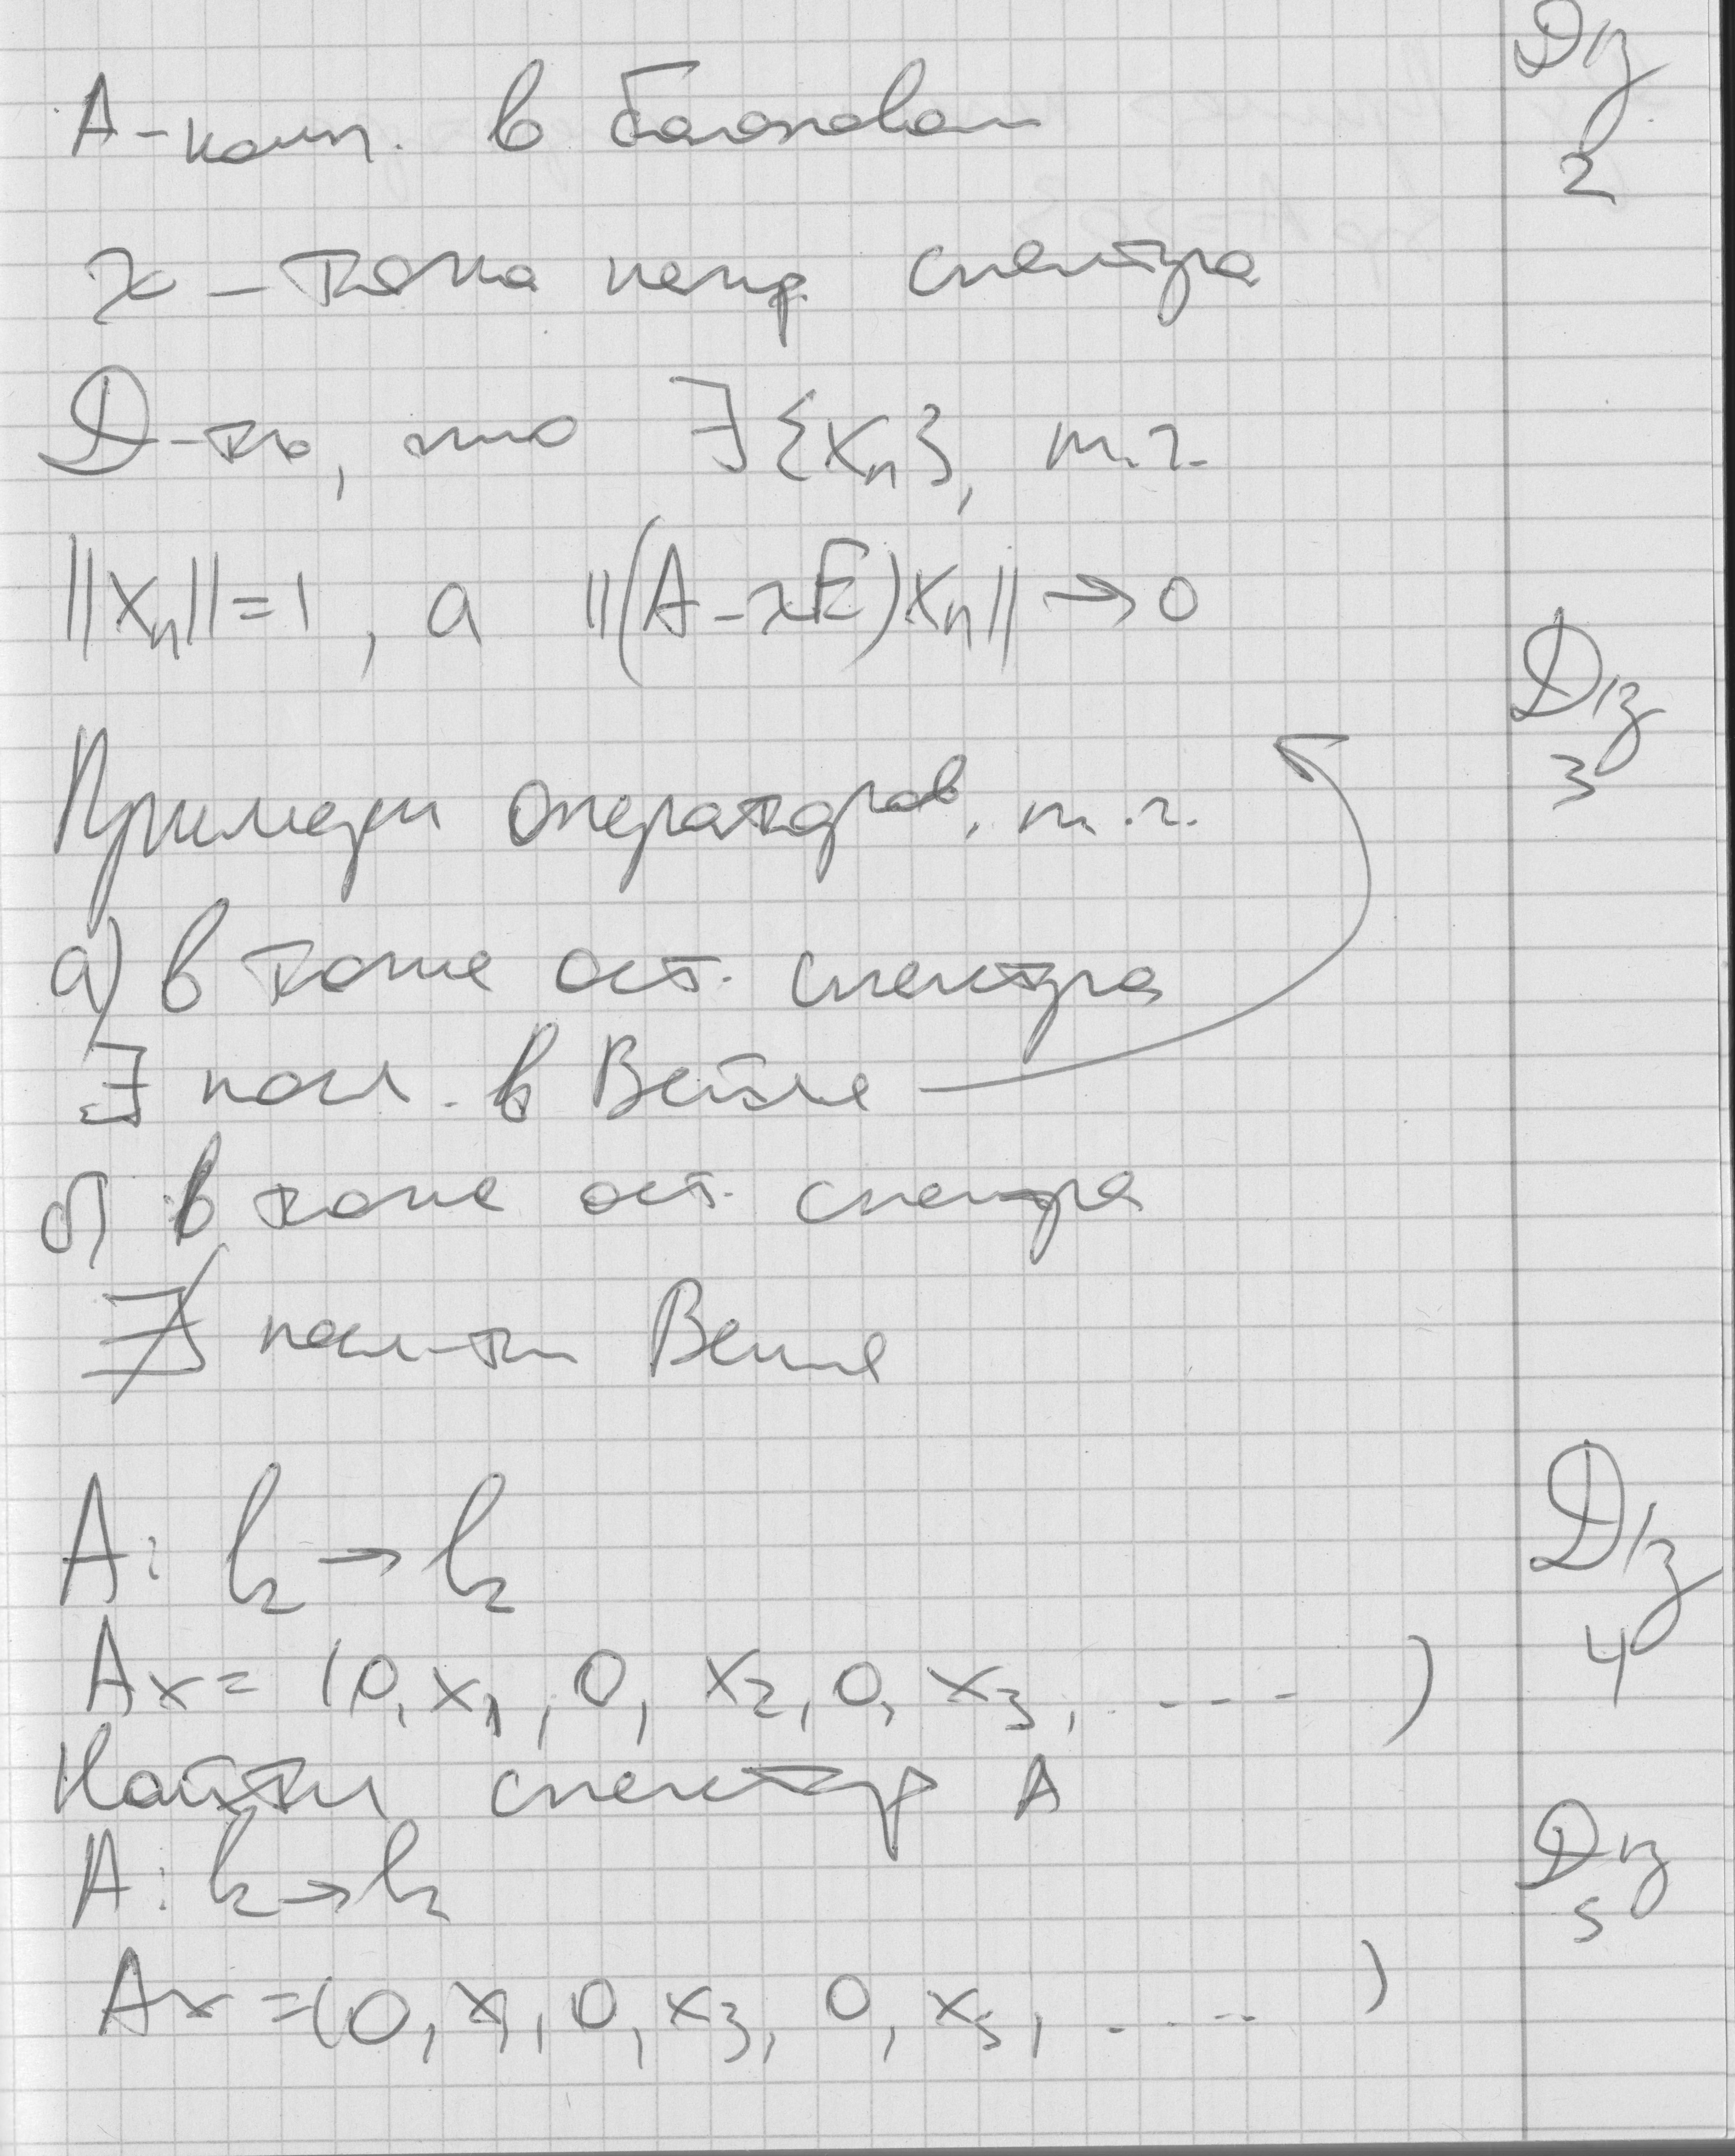 Д/з
2
A-комп. в банаховом
λ – точка непр. спектра
Д-ть, что ∃{xₙ}, т.ч.
||xₙ||=1, а ||(A-λE)xₙ|| → 0
Д/з
3
Примеры операторов, т.ч.
а) в точке ост. спектра
∃ посл. в Вейле
б) в точке ост. спектра
∄ посл-ти Вейля
Д/з
4
A: l₂ → l₂
Ax = (0, x₁, 0, x₂, 0, x₃, ----)
Найти спектр A
Д/з
5
A: l₂ → l₂
Ax = (0, x₁, 0, x₃, 0, x₅, .....)